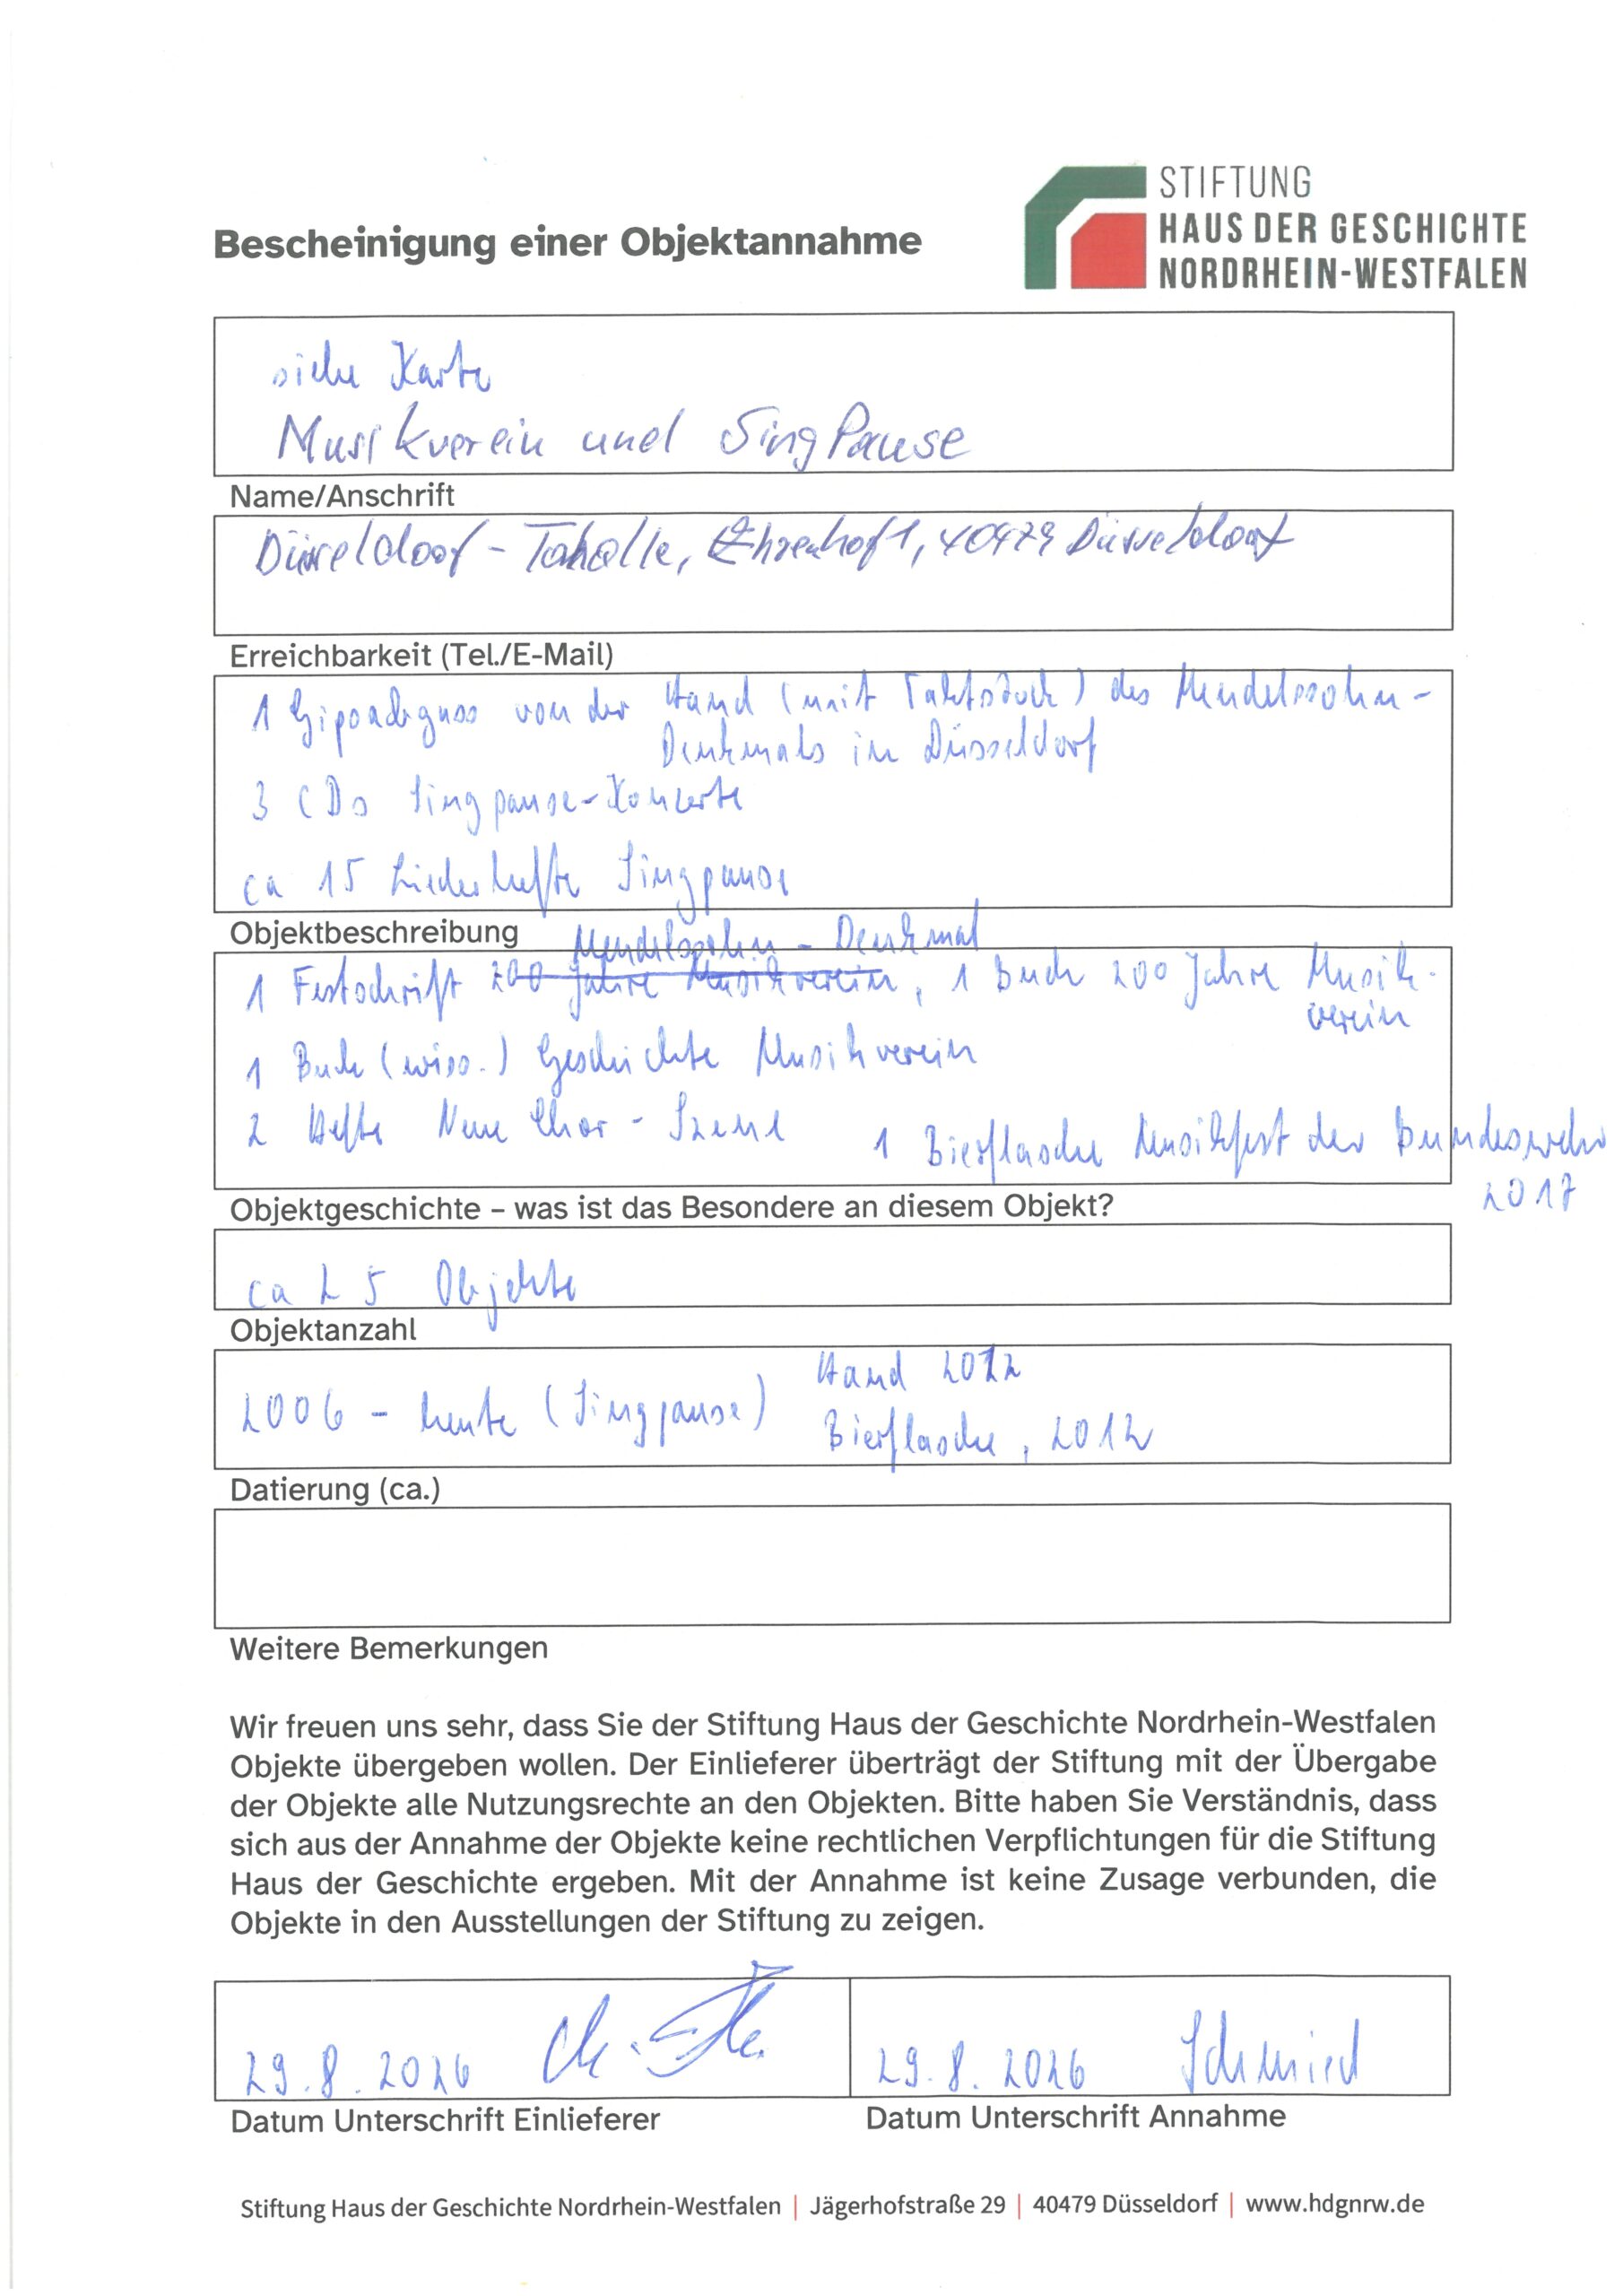 STIFTUNG
HAUS DER GESCHICHTE
NORDRHEIN-WESTFALEN
Bescheinigung einer Objektannahme
siehe Karte
Musikverein und SingPause
Name/Anschrift
Düsseldorf - Tohalle, Ehrenhof 1, 40479 Düsseldorf
Erreichbarkeit (Tel./E-Mail)
1 Gipsabguss von der Hand (mit Taktstock) des Mendelssohn-
Denkmals in Düsseldorf
3 CDs Singpause-Konzerte
ca 15 Liederhefte Singpause
Objektbeschreibung
Mendelssohn - Denkmal
1 Festschrift 200 Jahre Musikverein, 1 Buch 200 Jahre Musik-
verein
1 Buch (wiss.) Geschichte Musikverein
2 Hefte Neue Chor - Szene 1 Bierflasche Musikfest der Bundeswehr
2017
Objektgeschichte – was ist das Besondere an diesem Objekt?
ca 25 Objekte
Objektanzahl
Hand 2012
2006 - heute (Singpause)
Bierflasche, 2012
Datierung (ca.)
Weitere Bemerkungen
Wir freuen uns sehr, dass Sie der Stiftung Haus der Geschichte Nordrhein-Westfalen
Objekte übergeben wollen. Der Einlieferer überträgt der Stiftung mit der Übergabe
der Objekte alle Nutzungsrechte an den Objekten. Bitte haben Sie Verständnis, dass
sich aus der Annahme der Objekte keine rechtlichen Verpflichtungen für die Stiftung
Haus der Geschichte ergeben. Mit der Annahme ist keine Zusage verbunden, die
Objekte in den Ausstellungen der Stiftung zu zeigen.
29.8.2026
29.8.2026 Schmied
Datum Unterschrift Einlieferer
Datum Unterschrift Annahme
Stiftung Haus der Geschichte Nordrhein-Westfalen | Jägerhofstraße 29 | 40479 Düsseldorf | www.hdgnrw.de